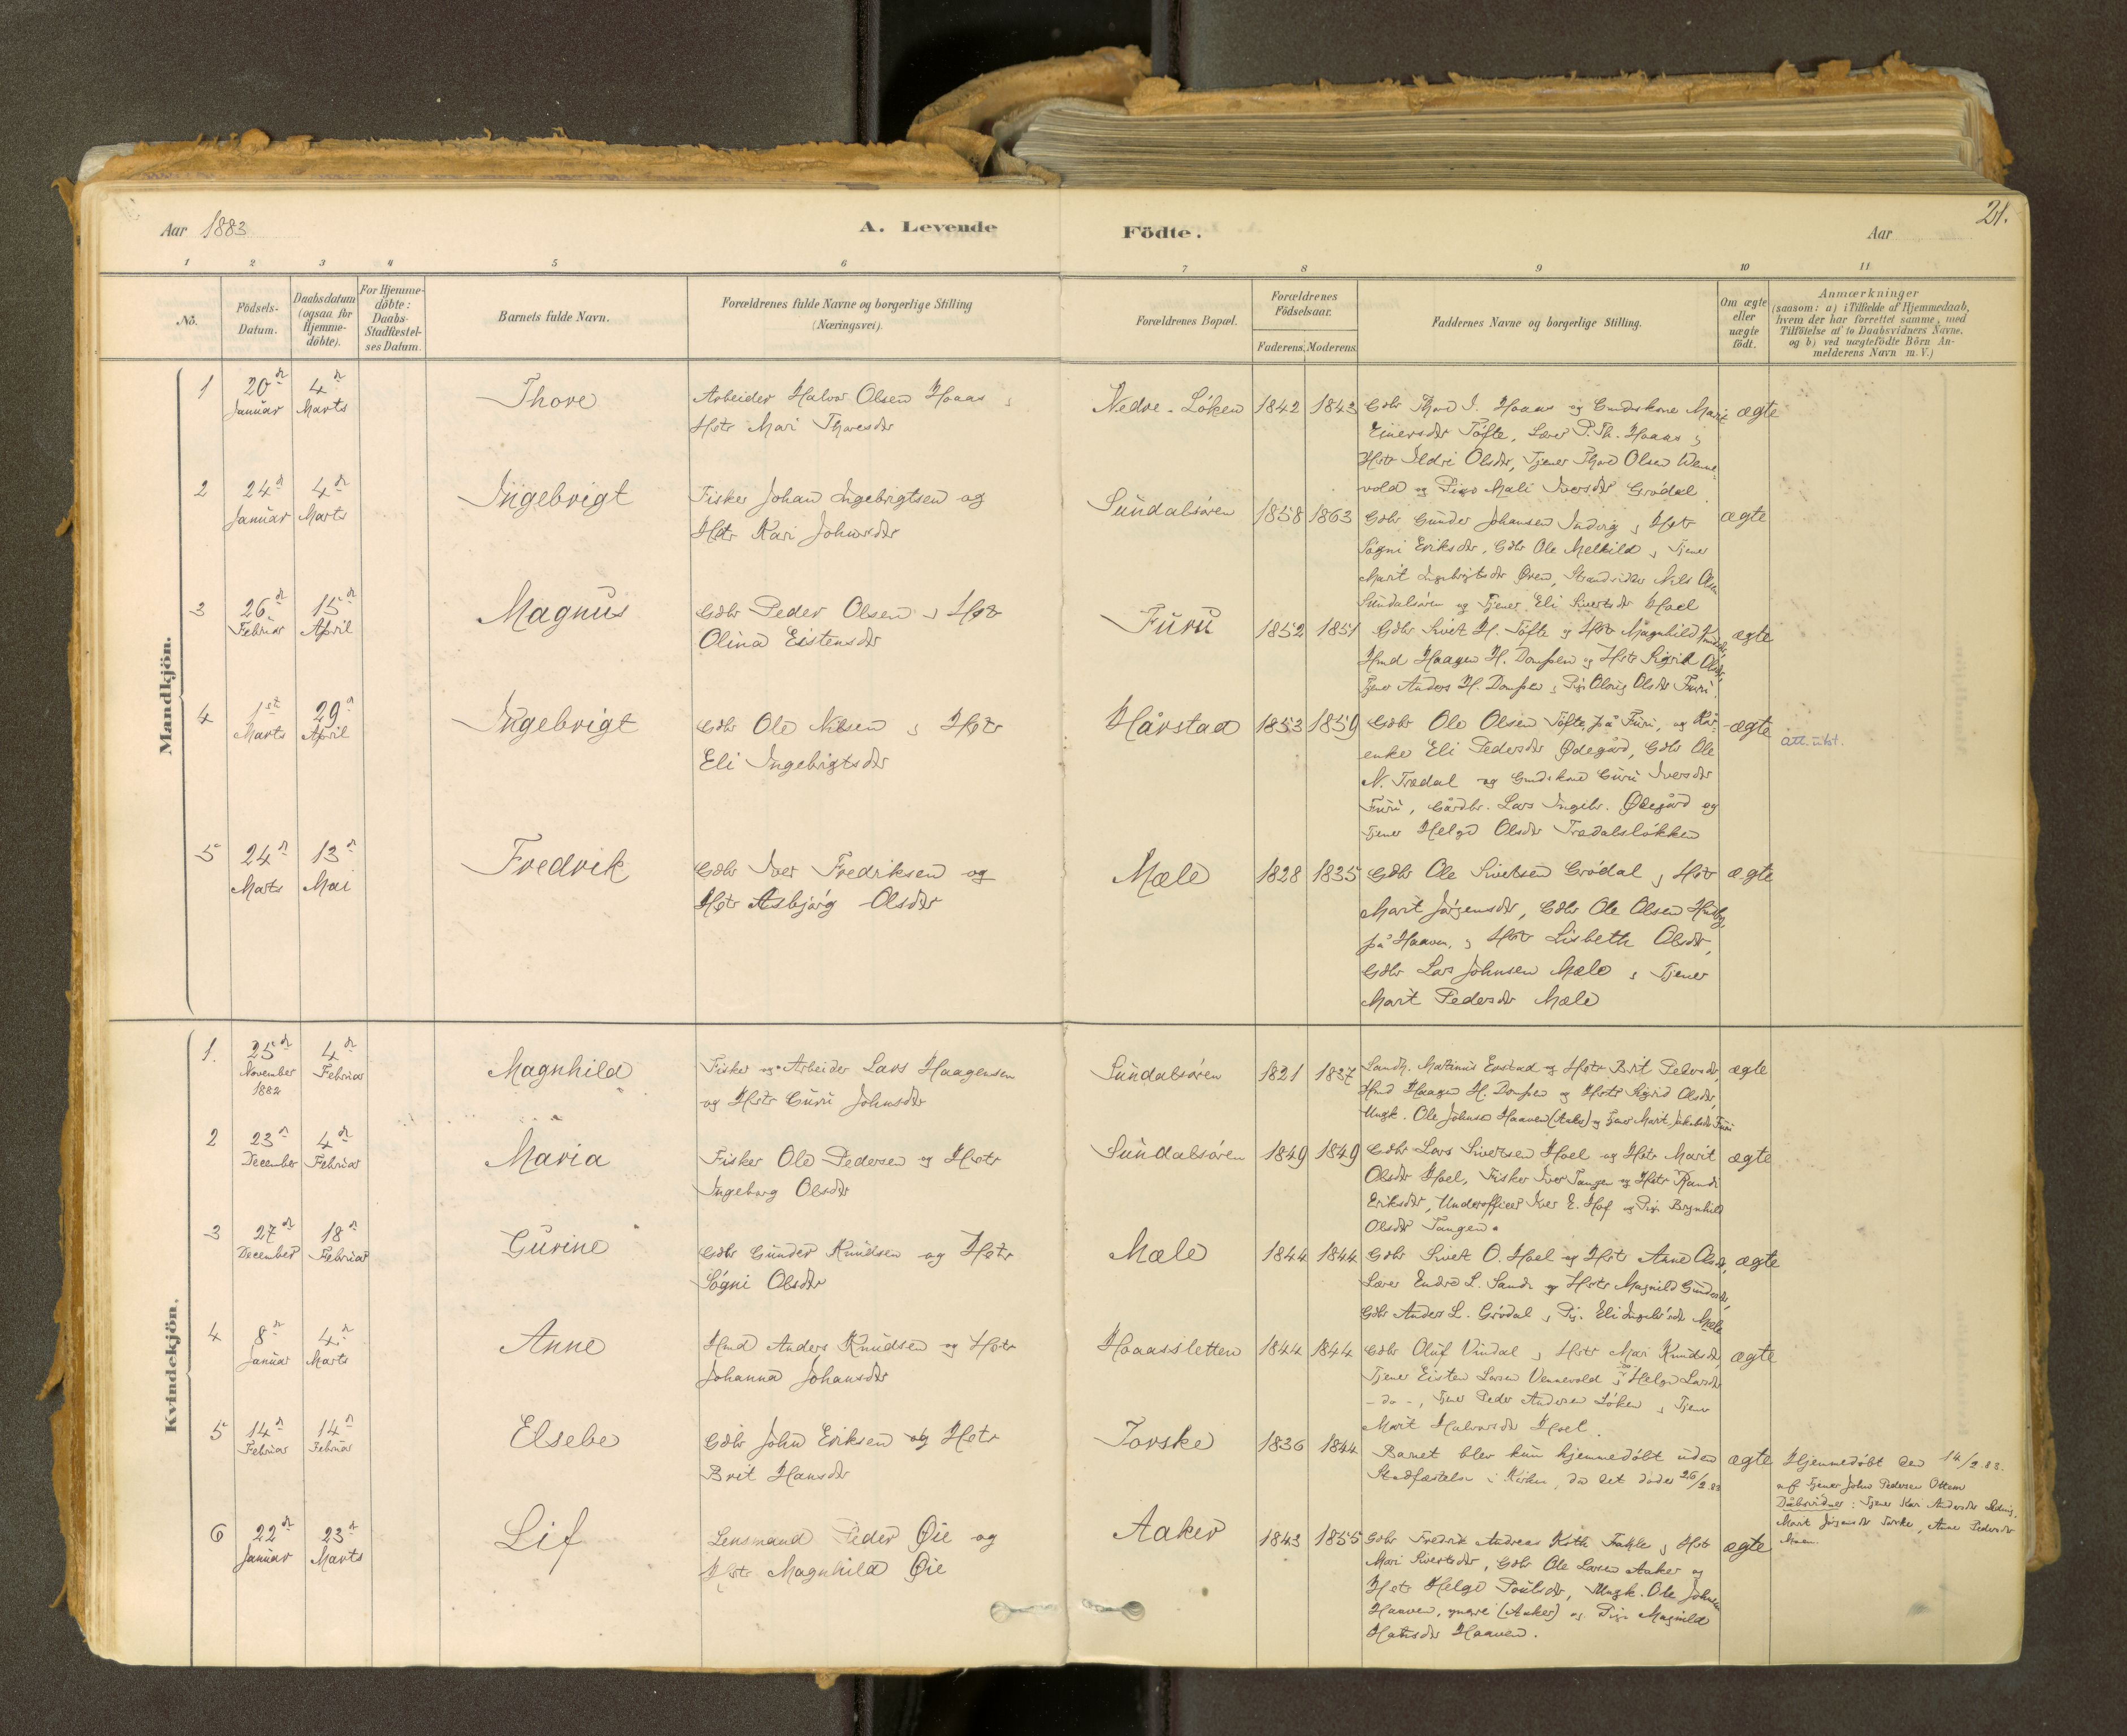 Aar 1883
A. Levende
Födte.
Aar
21.
1 2 3 4 5 6 7 8 9 10 11
No.
Födsels-
Datum.
Daabsdatum
(ogsaa for
Hjemme-
döbte).
For Hjemme-
döbte:
Daabs-
Stadfæstel-
ses Datum.
Barnets fulde Navn.
Forældrenes fulde Navne og borgerlige Stilling
(Næringsvei).
Forældrenes Bopæl.
Forældrenes
Födselsaar.
Faderens. Moderens.
Faddernes Navne og borgerlige Stilling.
Om ægte
eller
uægte
födt.
Anmærkninger
(saasom: a) i Tilfælde af Hjemmedaab,
hvem der har forrettet samme, med
Tilföielse af to Daabsvidners Navne,
og b) ved uægtefödte Börn An-
melderens Navn m. V.)
Mandkjön.
1 20de Januar 4de Marts
Thore
Arbeider Halvor Olsen Haaas
Hstr Mari Thoresdtr
Nedre-Löken 1842 1843
Gdbr Thore I. Haaas og Gmdskone Marit
Einersdtr Töfte, Lærer P. Th. Haaas
Hstr Ildri Olsdtr, Tjener Thore Olsen Venne-
vold og Pige Mali Iversdtr Grödal.
ægte
2 24de Januar 4de Marts
Ingebrigt
Fisker Johan Ingebrigtsen og
Hstr Kari Johnsdtr
Sundalsören 1858 1863
Gdbr Gunder Johansen Indvig Hstr
Sögni Eriksdtr, Gdbr Ole Melkild Tjener
Marit Ingebrigtsdtr Øren, Strandsidder Nils Olsen
Sundalsören og Tjener Eli Sivertsdtr Hoel
ægte
3 26de Februar 15de April
Magnus
Gdbr Peder Olsen Hstr
Olina Eistensdtr
Furu 1852 1851
Gdbr Sivert H. Töfte og Hstr Magnhild
Hmd Haagen H. Donssen og Hstr Sigrid Olsdtr,
Tjener Anders H. Donssen Olsdtr Furu.
ægte
4 1ste Marts 29de April
Ingebrigt
Gdbr Ole Nilsen Hstr
Eli Ingebrigtsdtr
Hårstad 1853 1859
Gdbr Ole Olsen Töfte på Furu, og Kår-
enke Eli Pedersdtr Ødegård, Gdbr Ole
N. Trædal og Gmdskone Guru Iversdtr
Furu, Gårdbr. Lars Ingebr. Ødegård og
Tjener Helge Olsdtr Trædalslökken
ægte
Att. utst.
5 24de Marts 13de Mai
Fredrik
Gdbr Iver Fredriksen og
Hstr Asbjörg Olsdtr
Mæle 1828 1835
Gdbr Ole Sivertsen Grödal Hstr
Marit Jörgensdtr, Gdbr Ole Olsen Husby
på Haaven, Hstr Lisbeth Olsdtr,
Gdbr Lars Johnsen Mæle Tjener
Marit Pedersdtr Mæle
ægte
Kvindekjön.
1. 25de November 1882 4de Februar
Magnhild
Fisker og Arbeider Lars Haagensen
og Hstr Guru Johnsdtr
Sundalsören 1821 1837
Landh. Martinus Enstad og Hstr Brit Pedersdtr,
Hmd Haagen H. Donssen og Hstr Sigrid Olsdtr,
Ungk. Ole Johnsen Haaven (Aaker) og Tjener Marit Jakobsdtr Furu
ægte
2 23de December 4de Februar
Maria
Fisker Ole Pedersen og Hstr
Ingeborg Olsdtr
Sundalsören 1849 1849
Gdbr Lars Sivertsen Hoel og Hstr Marit
Olsdtr Hoel, Fisker Iver Tangen og Hstr Randi
Eriksdtr, Underofficer Iver E. Hof og Pige Brynhild
Olsdtr Tangen.
ægte
3 27de December 18de Februar
Gurine
Gdbr Gunder Knudsen og Hstr
Sögni Olsdtr
Mæle 1844 1844
Gdbr Sivert O. Hoel og Hstr Anne Olsdtr,
Lærer Endre L. Sande og Hstr Magnild Gundersdtr,
Gdbr Anders L. Grödal Pige Eli Ingebr.sdtr Mæle
ægte
4 8de Januar 4de Marts
Anne
Hmd Anders Knudsen og Hstr
Johanna Johansdtr
Haaassletten 1844 1844
Gdbr Oluf Vindal Hstr Mari Knudsdtr,
Tjener Eisten Larsen Vennevold Helge Larsdtr
- do -, Tjener Peder Andersen Löken Tjener
Marit Halvorsdtr Hoel.
ægte
5 14de Februar 14de Februar
Elsebe
Gdbr John Eriksen og Hstr
Brit Hansdtr
Torske 1836 1844
Barnet blev kun hjemmedöbt uden
Stadfæstelse i Kirken, da det döde 26/2 83
ægte
Hjemmedöbt den 14/2 83.
af Tjener John Pedersen Ottem
Dåbsvidner: Tjener Kari Andersdtr
Marit Jörgensdtr Torske, Anne Pedersdtr
Moen.
6 22de Januar 23de Marts
Lif
Lensmand Peder Øie og
Hstr Magnhild Øie
Aaker 1843 1855
Gdbr Fredrik Andreas Koth Fahle Hstr
Mari Sivertsdtr, Gdbr Ole Larsen Aaker og
Hstr Helge Poulsdtr, Ungk. Ole Johnsen
Haaven, yngre (Aaker) og Pige Magnild
Haaven.
ægte